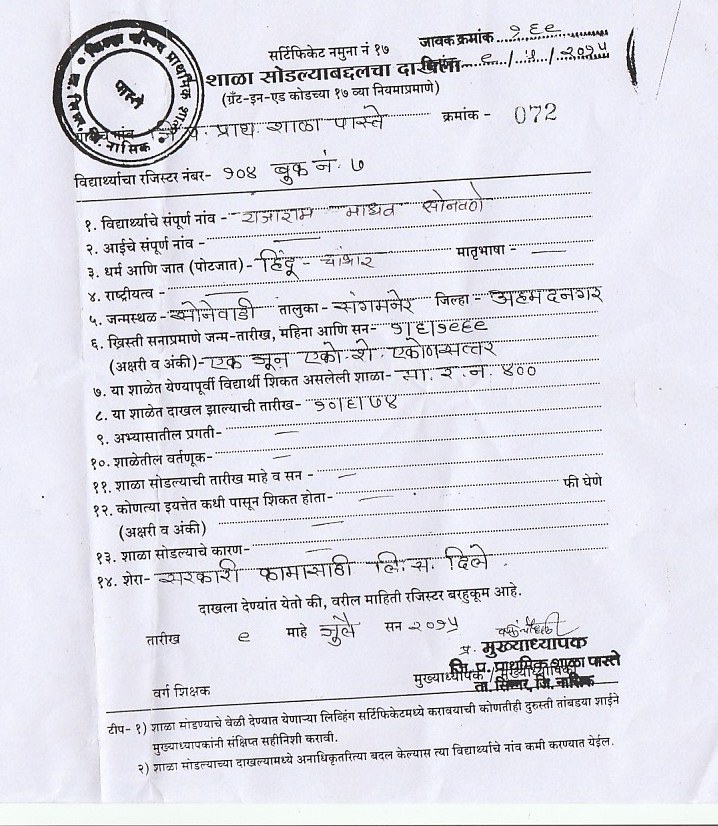 जिल्हा परिषद प्राथमिक शाळा
पास्ते
जि. नासिक
सर्टिफिकेट नमुना नं १७
जावक क्रमांक १६९
शाळा सोडल्याबद्दलचा दाखला
९/५/२०१५
(ग्रँट-इन-एड कोडच्या १७ व्या नियमाप्रमाणे)
जि प प्राथ शाळा पास्ते क्रमांक - 072
विद्यार्थ्याचा रजिस्टर नंबर- १०४ बुक नं. ७
१. विद्यार्थ्याचे संपूर्ण नांव - राजाराम माधव सोनवणे
२. आईचे संपूर्ण नांव -
३. धर्म आणि जात (पोटजात) - हिंदू - चांभार मातृभाषा -
४. राष्ट्रीयत्व -
५. जन्मस्थळ - सोनेवाडी तालुका- संगमनेर जिल्हा - अहमदनगर
६. ख्रिस्ती सनाप्रमाणे जन्म-तारीख, महिना आणि सन- १/६/१९६९
(अक्षरी व अंकी)- एक जून एकोणीशे एकोणसत्तर
७. या शाळेत येण्यापूर्वी विद्यार्थी शिकत असलेली शाळा- सा. र. न. ४००
८. या शाळेत दाखल झाल्याची तारीख- १०/६/७४
९. अभ्यासातील प्रगती-
१०. शाळेतील वर्तणूक-
११. शाळा सोडल्याची तारीख माहे व सन -
१२. कोणत्या इयत्तेत कधी पासून शिकत होता- फी घेणे
(अक्षरी व अंकी)
१३. शाळा सोडल्याचे कारण-
१४. शेरा- सरकारी कामासाठी लि. स. दिले.
दाखला देण्यांत येतो की, वरील माहिती रजिस्टर बरहुकूम आहे.
तारीख ९ माहे जुलै सन २०१५
प्र. मुख्याध्यापक
जि. प. प्राथमिक शाळा पास्ते
मुख्याध्यापक / मुख्याध्यापिका
ता. सिन्नर, जि. नासिक
वर्ग शिक्षक
टीप- १) शाळा सोडण्याचे वेळी देण्यात येणाऱ्या लिव्हिंग सर्टिफिकेटमध्ये करावयाची कोणतीही दुरुस्ती तांबडया शाईने
मुख्याध्यापकांनी संक्षिप्त सहीनिशी करावी.
२) शाळा सोडल्याच्या दाखल्यामध्ये अनाधिकृतरित्या बदल केल्यास त्या विद्यार्थ्याचे नांव कमी करण्यात येईल.